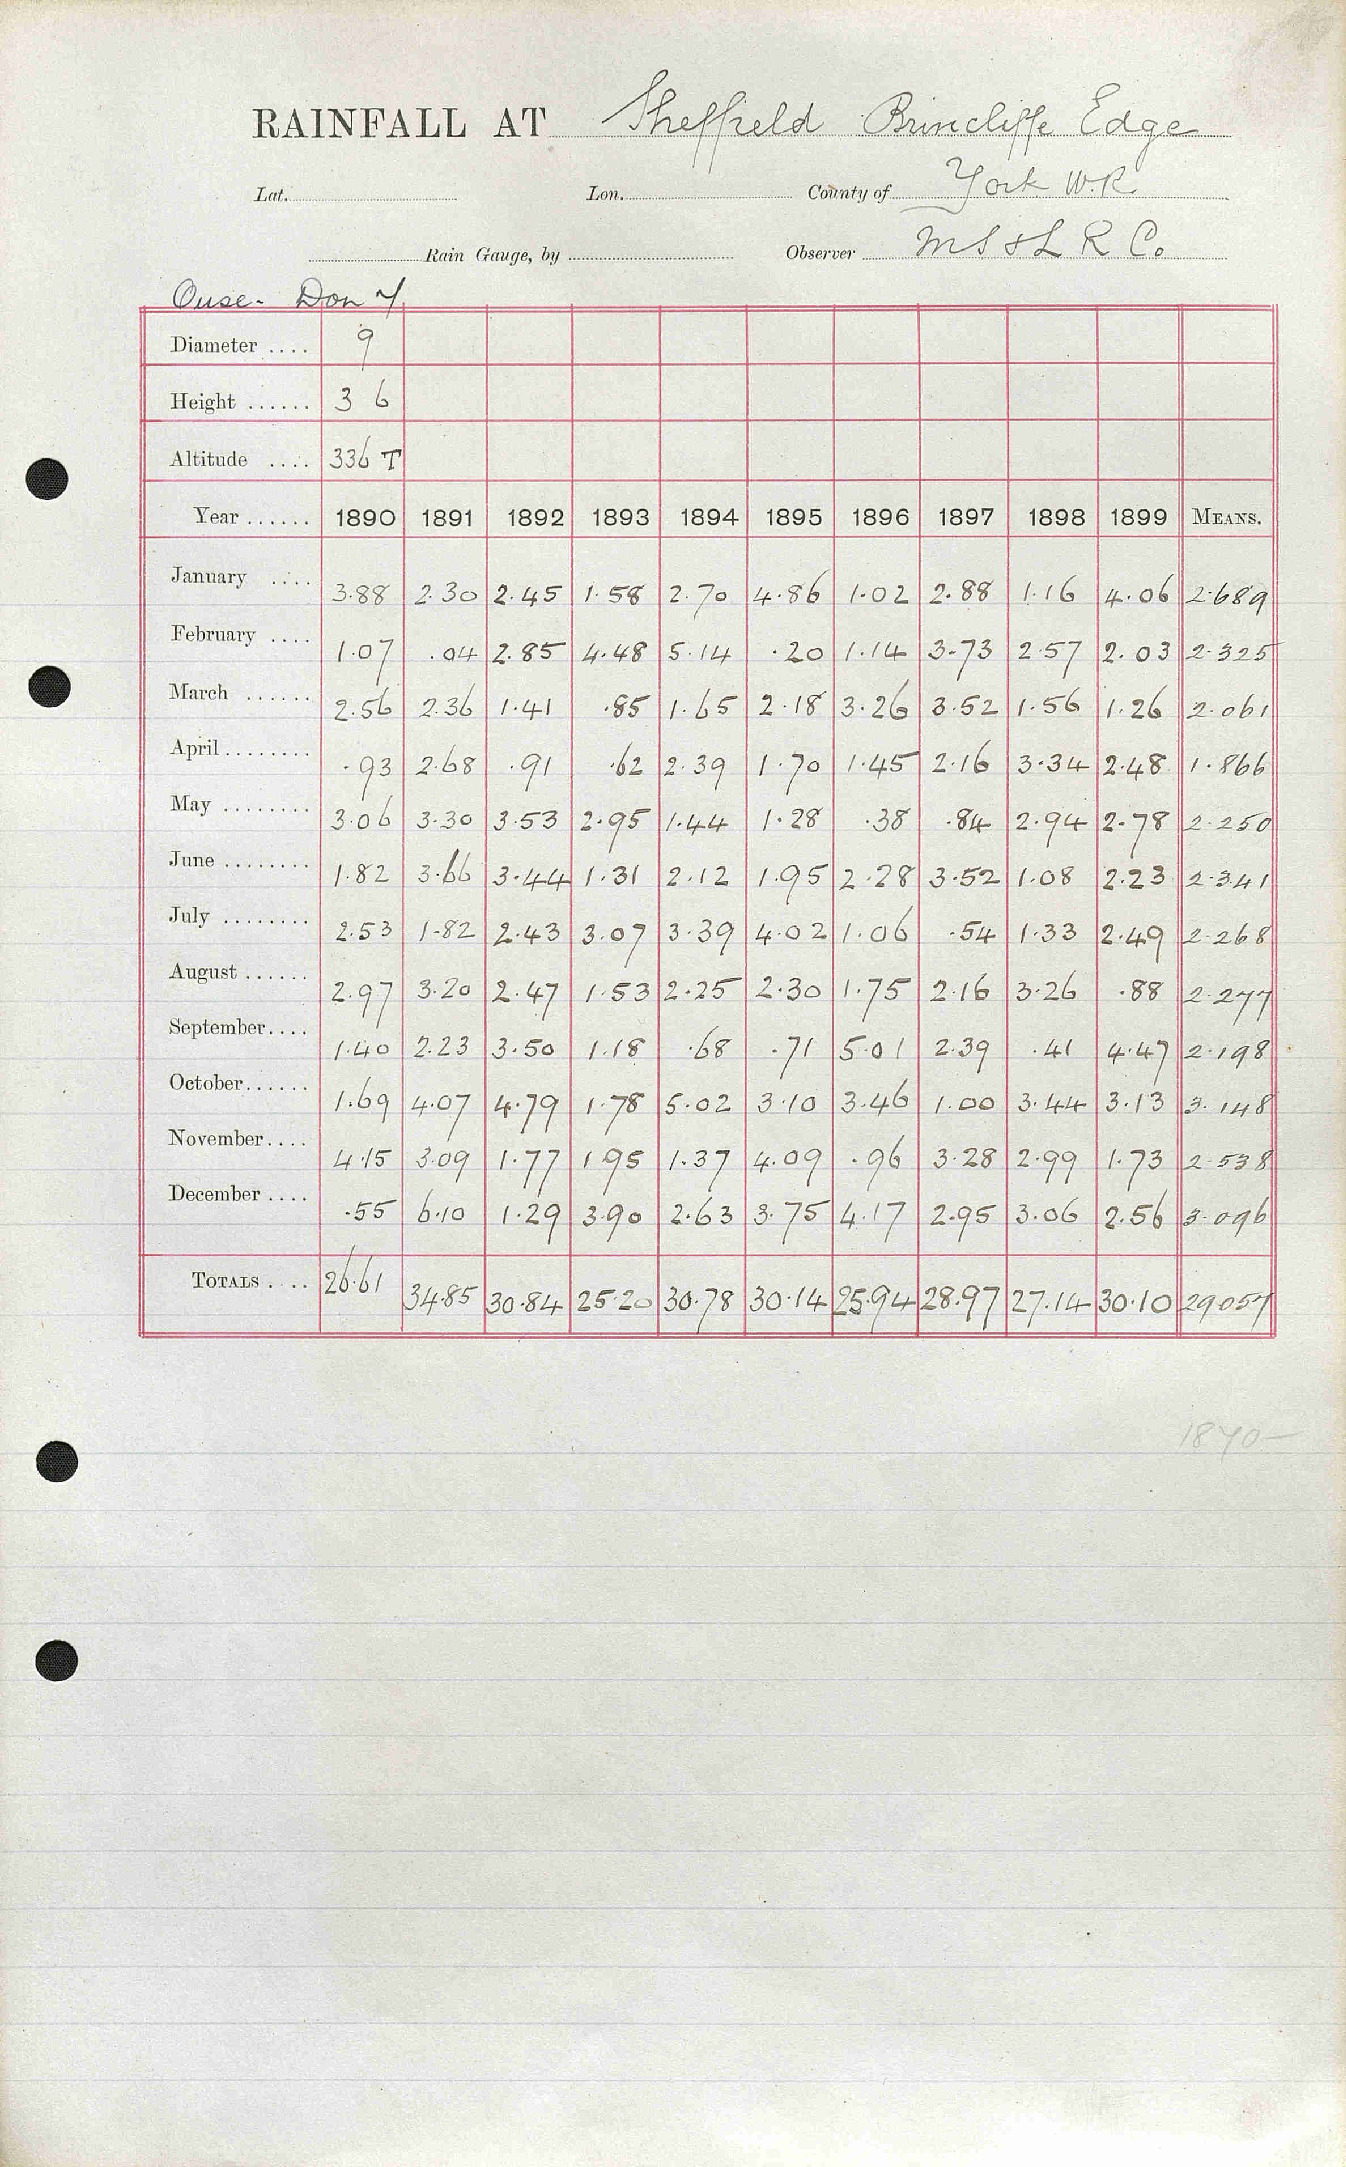 RAINFALL AT Sheffield Brincliffe Edge
Lat. Lon. County of York W.R.
Rain Gauge, by Observer M S & L R Co.
Ouse. Don 7.
Diameter .... 9
Height ...... 3 6
Altitude .... 336 T
Year ...... 1890 1891 1892 1893 1894 1895 1896 1897 1898 1899 MEANS.
January .... 3.88 2.30 2.45 1.58 2.70 4.86 1.02 2.88 1.16 4.06 2.689
February .... 1.07 .04 2.85 4.48 5.14 .20 1.14 3.73 2.57 2.03 2.325
March ...... 2.56 2.36 1.41 .85 1.65 2.18 3.26 3.52 1.56 1.26 2.061
April ........ .93 2.68 .91 .62 2.39 1.70 1.45 2.16 3.34 2.48 1.866
May ........ 3.06 3.30 3.53 2.95 1.44 1.28 .38 .84 2.94 2.78 2.250
June ........ 1.82 3.66 3.44 1.31 2.12 1.95 2.28 3.52 1.08 2.23 2.341
July ........ 2.53 1.82 2.43 3.07 3.39 4.02 1.06 .54 1.33 2.49 2.268
August ...... 2.97 3.20 2.47 1.53 2.25 2.30 1.75 2.16 3.26 .88 2.277
September.... 1.40 2.23 3.50 1.18 .68 .71 5.01 2.39 .41 4.47 2.198
October...... 1.69 4.07 4.79 1.78 5.02 3.10 3.46 1.00 3.44 3.13 3.148
November.... 4.15 3.09 1.77 1.95 1.37 4.09 .96 3.28 2.99 1.73 2.538
December .... .55 6.10 1.29 3.90 2.63 3.75 4.17 2.95 3.06 2.56 3.096
TOTALS .... 26.61 34.85 30.84 25.20 30.78 30.14 25.94 28.97 27.14 30.10 29.057
1870–